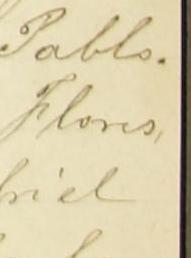 Pablo.
Flores,
briel